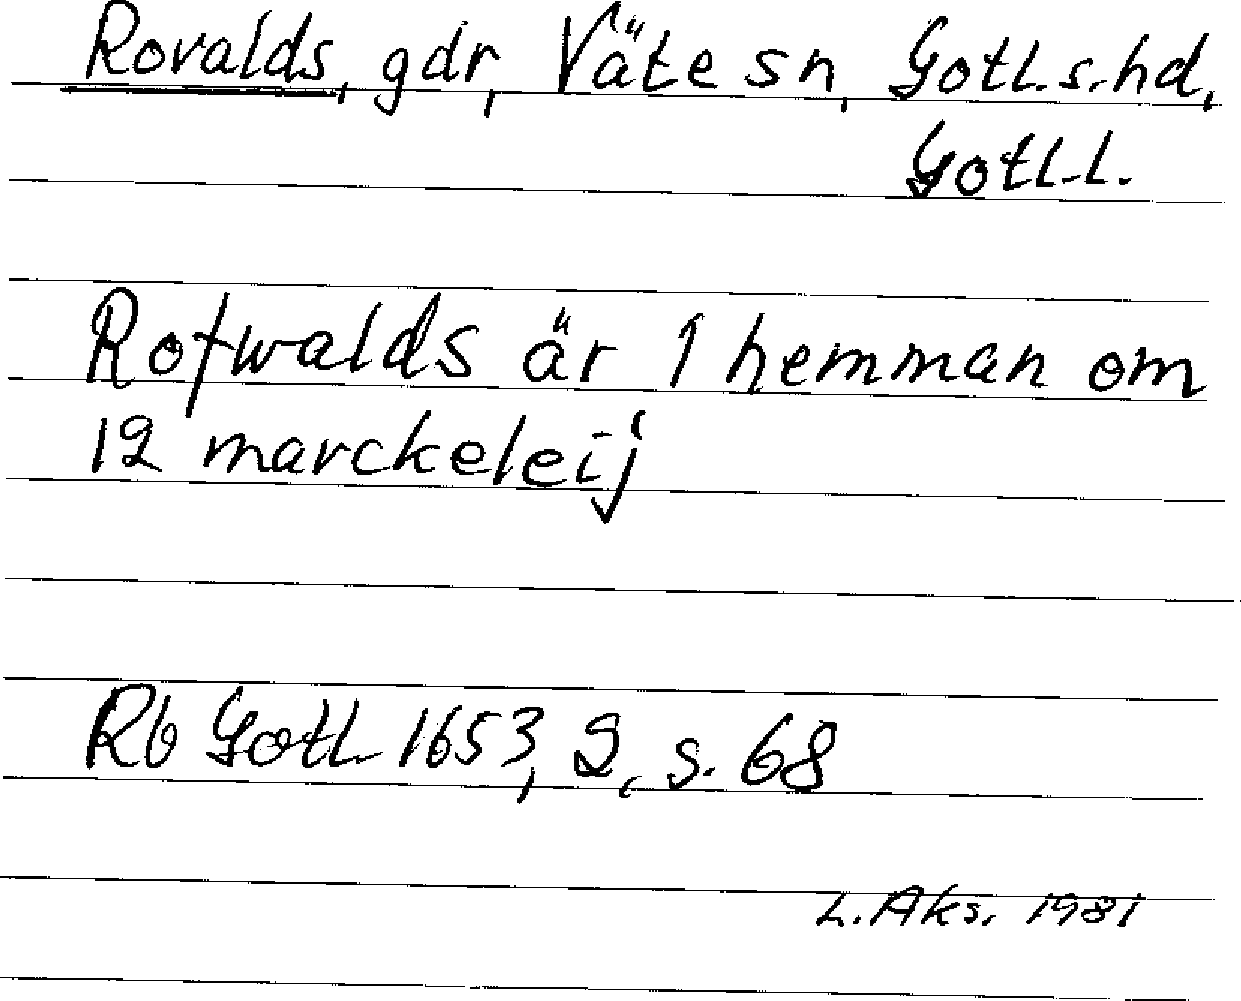 Rovalds, gdr, Väte sn, Gotl. s. hd,
Gotl. l.
Rofwalds är 1 hemman om
12 marckeleij
Rb Gotl. 1653, 2, s. 68
L. Aks. 1981